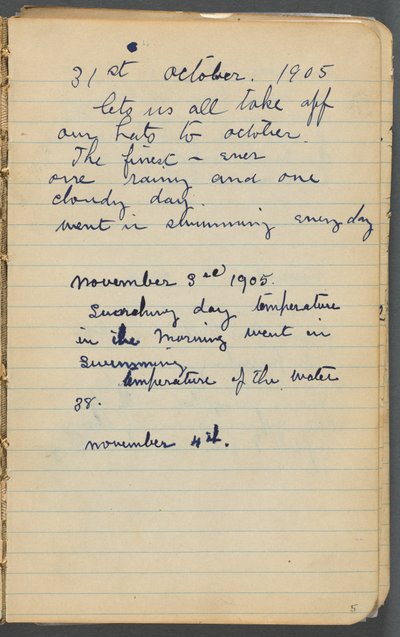 31st october. 1905
lets us all take off
our hats to october
The finest - ever
one rainy and one
cloudy day.
went in swimming every day
november 3rd 1905.
day temperature
in the morning went in
swimming
temperature of the water
38.
november 4th.
5